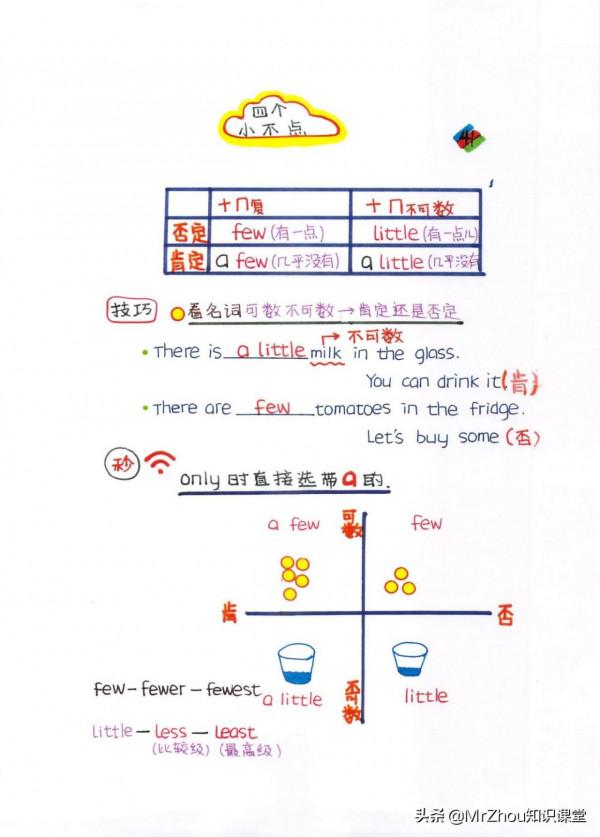 四个
小不点
41
+几复 +几不可数
否定 few(有一点) little(有一点儿)
肯定 a few(几乎没有) a little(几乎没有
技巧 看名词可数不可数→肯定还是否定
不可数
There is a little milk in the glass.
You can drink it(肯)
There are few tomatoes in the fridge.
Let's buy some (否)
秒 only时直接选带a的.
a few 可数 few
肯 否
a little 不可数 little
few-fewer-fewest
little-less-least
(比较级)(最高级)
头条 @MrZhou知识课堂